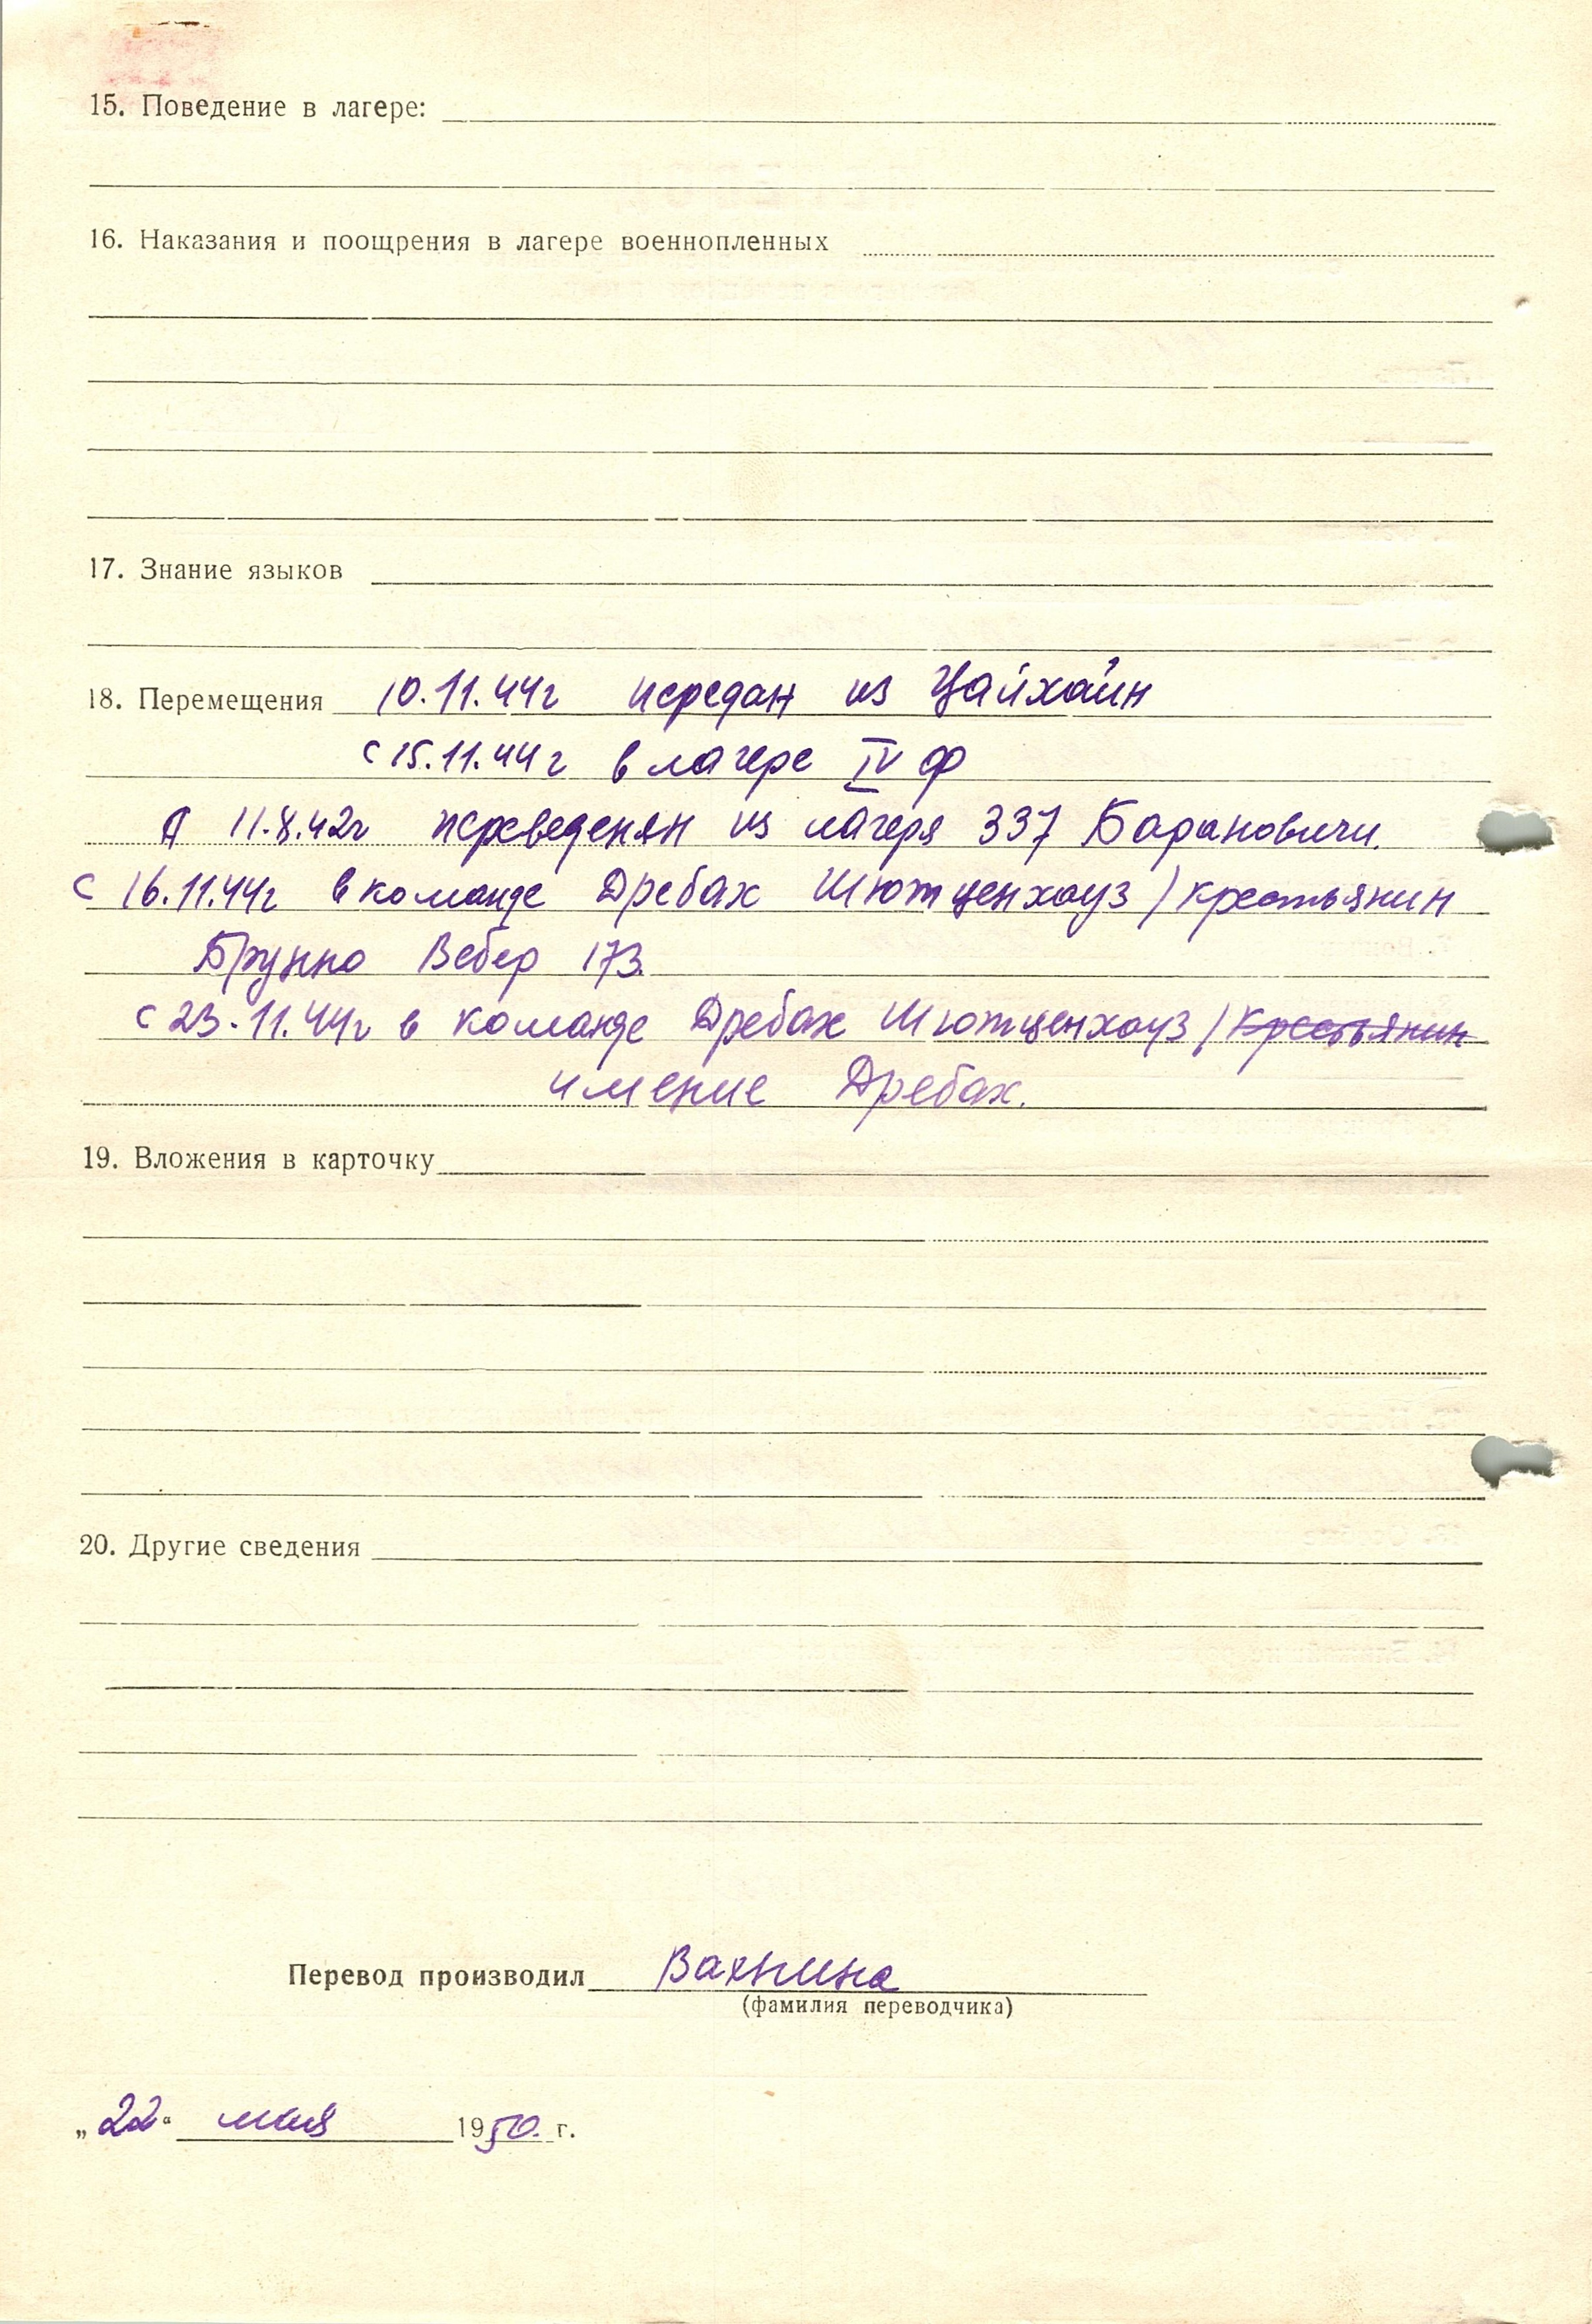 15. Поведение в лагере:
16. Наказания и поощрения в лагере военнопленных
17. Знание языков
18. Перемещения 10.11.44г передан из Цайхайн
с 15.11.44г в лагере IV ф
11.8.42г переведен из лагеря 337 Барановичи.
с 16.11.44г в команде Дребах Шютценхауз / крестьянин
Брунно Вебер 173.
с 23.11.44г в команде Дребах Шютценхауз / крестьянин
имение Дребах.
19. Вложения в карточку
20. Другие сведения
Перевод производил Вахнина
(фамилия переводчика)
„22“ мая 1950. г.